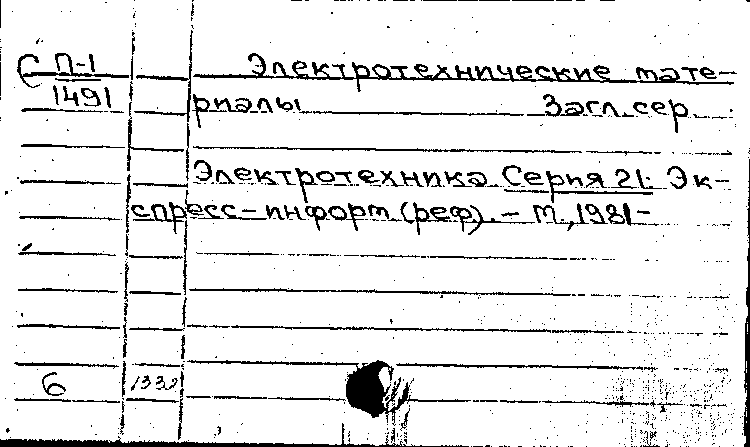 С П-1 Электротехнические мате-
1491 риалы Загл. сер.
Электротехника. Серия 21: Эк-
спресс-информ. (реф). – М., 1981–
6 1332